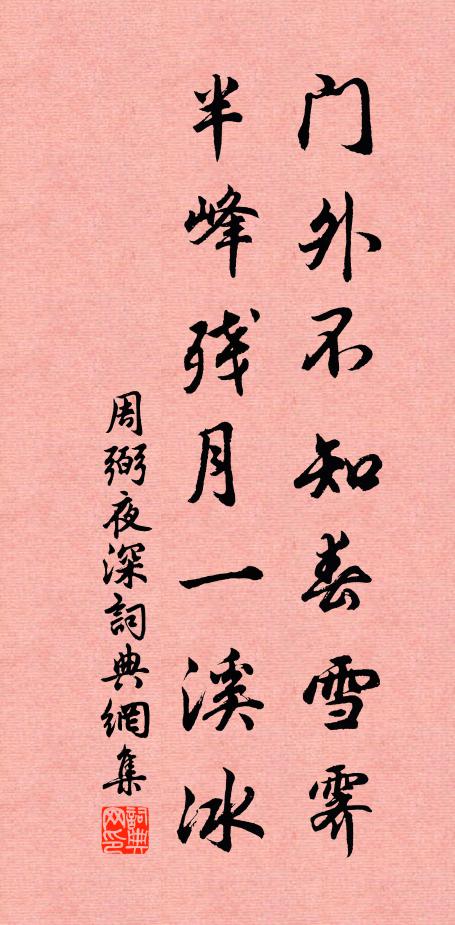 门外不知春雪霁
半峰残月一溪冰
周弼夜深詞典網集
詞典网印